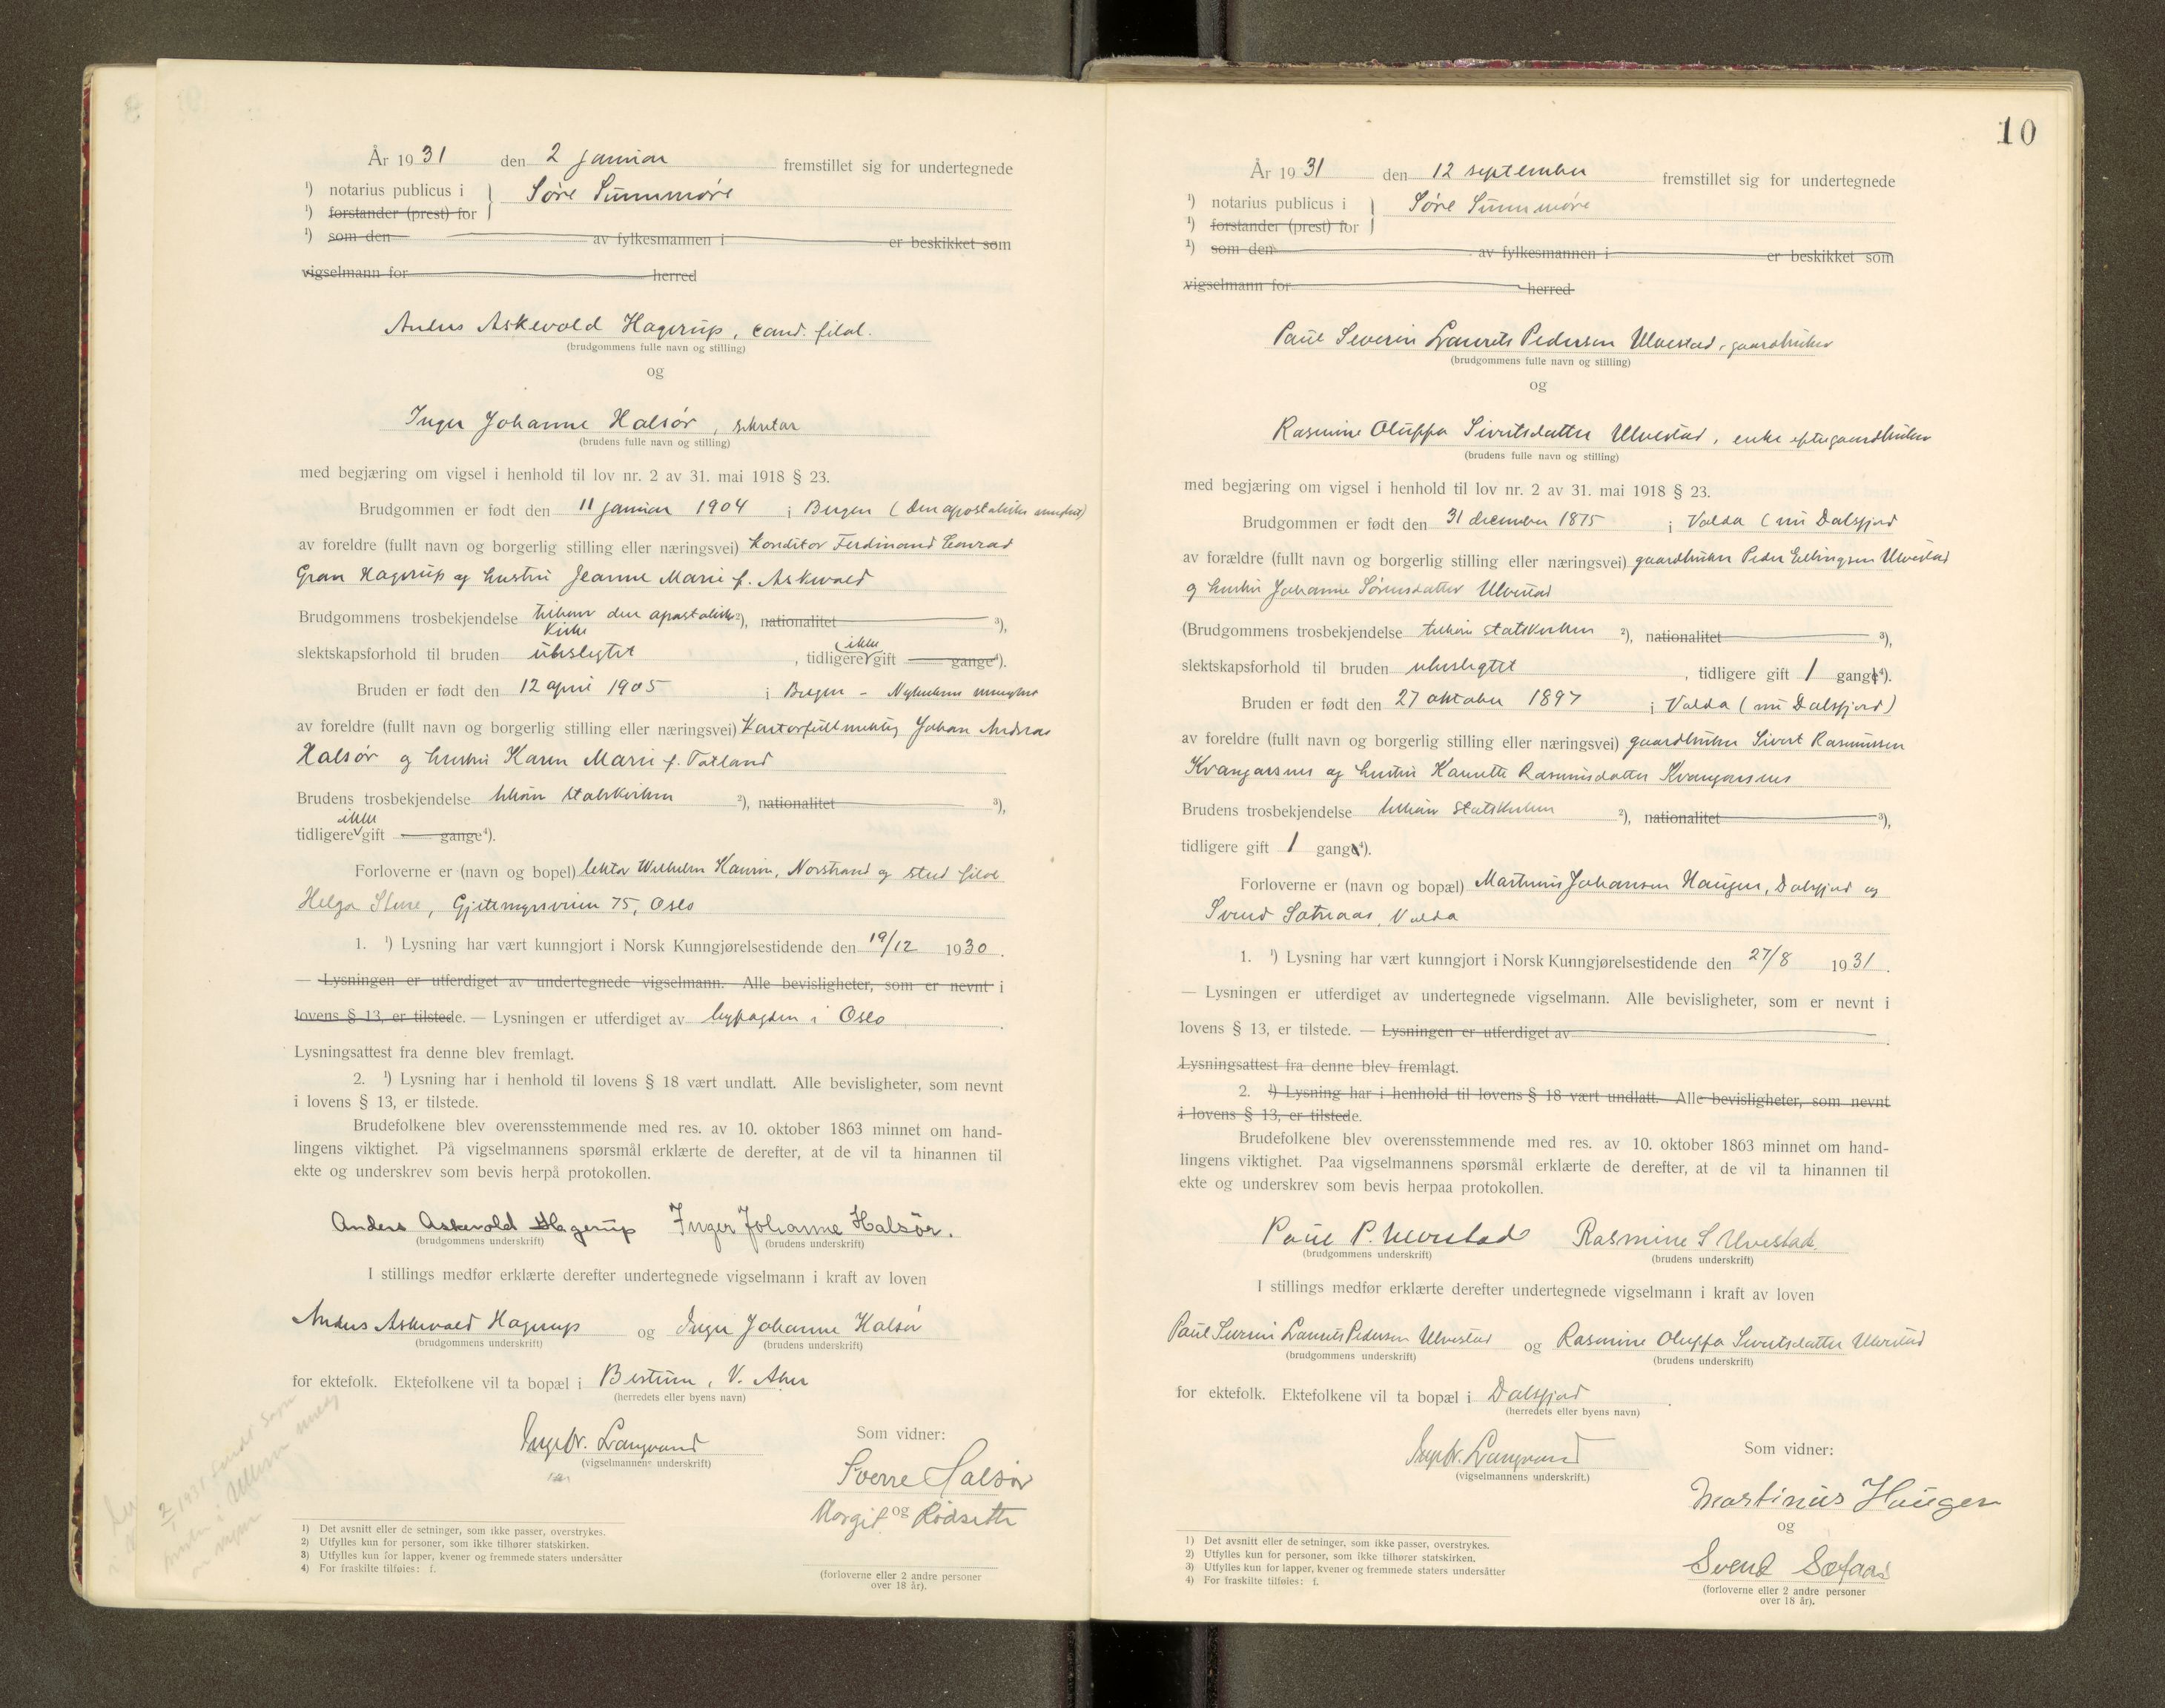 År 1931 den 2 januar fremstillet sig for undertegnede
¹) notarius publicus i } Søre Sunnmøre
¹) forstander (prest) for
¹) som den av fylkesmannen i er beskikket som
vigselmann for herred
Anders Askevold Hagerup, cand. filol.
(brudgommens fulle navn og stilling)
og
Inger Johanne Halsør, sekretær
(brudens fulle navn og stilling)
med begjæring om vigsel i henhold til lov nr. 2 av 31. mai 1918 § 23.
Brudgommen er født den 11 januar 1904 i Bergen (den apostoliske menighet)
av foreldre (fullt navn og borgerlig stilling eller næringsvei) konditor Ferdinand Conrad
Gran Hagerup og hustru Jeanne Marie f. Askevold
Brudgommens trosbekjendelse tilhører den apostoliske ²), nationalitet ³),
kirke
slektskapsforhold til bruden ubeslegtet , tidligere ikke gift gange⁴).
Bruden er født den 12 april 1905 i Bergen - Nykirkens menighet
av foreldre (fullt navn og borgerlig stilling eller næringsvei) Kontorfullmektig Johan Andreas
Halsør og hustru Karen Marie f. Totland
Brudens trosbekjendelse tilhører statskirken ²), nationalitet ³),
ikke
tidligere gift gange⁴).
Forloverne er (navn og bopel) lektor Wilhelm Kaurin, Norstrand og stud filol
Helga Stene, Gjetemyrsveien 75, Oslo
1. ¹) Lysning har vært kunngjort i Norsk Kunngjørelsestidende den 19/12 1930.
— Lysningen er utferdiget av undertegnede vigselmann. Alle bevisligheter, som er nevnt i
lovens § 13, er tilstede. — Lysningen er utferdiget av byfogden i Oslo .
Lysningsattest fra denne blev fremlagt.
2. ¹) Lysning har i henhold til lovens § 18 vært undlatt. Alle bevisligheter, som nevnt
i lovens § 13, er tilstede.
Brudefolkene blev overensstemmende med res. av 10. oktober 1863 minnet om hand-
lingens viktighet. På vigselmannens spørsmål erklærte de derefter, at de vil ta hinannen til
ekte og underskrev som bevis herpå protokollen.
Anders Askevold Hagerup Inger Johanne Halsör.
(brudgommens underskrift) (brudens underskrift)
I stillings medfør erklærte derefter undertegnede vigselmann i kraft av loven
Anders Askevold Hagerup og Inger Johanne Halsør
(brudgommens underskrift) (brudens underskrift)
for ektefolk. Ektefolkene vil ta bopæl i Bestum, V. Aker
(herredets eller byens navn)
Ingebr. Langvand
(vigselmannens underskrift)
Som vidner:
Sverre Halsør
og
Margit Rødseth
(forloverne eller 2 andre personer
over 18 år).
1) Det avsnitt eller de setninger, som ikke passer, overstrykes.
2) Utfylles kun for personer, som ikke tilhører statskirken.
3) Utfylles kun for lapper, kvener og fremmede staters undersåtter
4) For fraskilte tilføies: f.
10
År 1931 den 12 september fremstillet sig for undertegnede
¹) notarius publicus i } Søre Sunnmøre
¹) forstander (prest) for
¹) som den av fylkesmannen i er beskikket som
vigselmann for herred
Paul Severin Laurits Pedersen Ulvestad, gaardbruker
(brudgommens fulle navn og stilling)
og
Rasmine Oluffa Sivertsdatter Ulvestad, enke efter gaardbruker
(brudens fulle navn og stilling)
med begjæring om vigsel i henhold til lov nr. 2 av 31. mai 1918 § 23.
Brudgommen er født den 31 december 1875 i Volda (nu Dalsfjord
av forældre (fullt navn og borgerlig stilling eller næringsvei) gaardbruker Peder Ellingsen Ulvestad
og hustru Johanne Sørensdatter Ulvestad
(Brudgommens trosbekjendelse tilhører statskirken ²), nationalitet ³),
slektskapsforhold til bruden ubeslegtet , tidligere gift 1 gang⁴).
Bruden er født den 27 oktober 1897 i Volda (nu Dalsfjord)
av foreldre (fullt navn og borgerlig stilling eller næringsvei) gaardbruker Sivert Rasmussen
Kvangarsnes og hustru Hanette Rasmusdatter Kvangarsnes
Brudens trosbekjendelse tilhører statskirken ²), nationalitet ³),
tidligere gift 1 gang⁴).
Forloverne er (navn og bopæl) Martinus Johansen Haugen, Dalsfjord og
Svend Sætraas, Volda
1. ¹) Lysning har vært kunngjort i Norsk Kunngjørelsestidende den 27/8 1931.
— Lysningen er utferdiget av undertegnede vigselmann. Alle bevisligheter, som er nevnt i
lovens § 13, er tilstede. — Lysningen er utferdiget av .
Lysningsattest fra denne blev fremlagt.
2. ¹) Lysning har i henhold til lovens § 18 vært undlatt. Alle bevisligheter, som nevnt
i lovens § 13, er tilstede.
Brudefolkene blev overensstemmende med res. av 10. oktober 1863 minnet om hand-
lingens viktighet. Paa vigselmannens spørsmål erklærte de derefter, at de vil ta hinannen til
ekte og underskrev som bevis herpaa protokollen.
Paul P. Ulvestad Rasmine S Ulvestad.
(brudgommens underskrift) (brudens underskrift)
I stillings medfør erklærte derefter undertegnede vigselmann i kraft av loven
Paul Severin Laurits Pedersen Ulvestad og Rasmine Oluffa Sivertsdatter Ulvestad
(brudgommens underskrift) (brudens underskrift)
for ektefolk. Ektefolkene vil ta bopæl i Dalsfjord .
(herredets eller byens navn)
Ingebr. Langvand
(vigselmannens underskrift.)
Som vidner:
Martinus Haugen
og
Svend Sætraas
(forloverne eller 2 andre personer
over 18 år).
1) Det avsnitt eller de setninger, som ikke passer, overstrykes.
2) Utfylles kun for personer, som ikke tilhører statskirken.
3) Utfylles kun for lapper, kvener og fremmede staters undersåtter
4) For fraskilte tilføies: f.